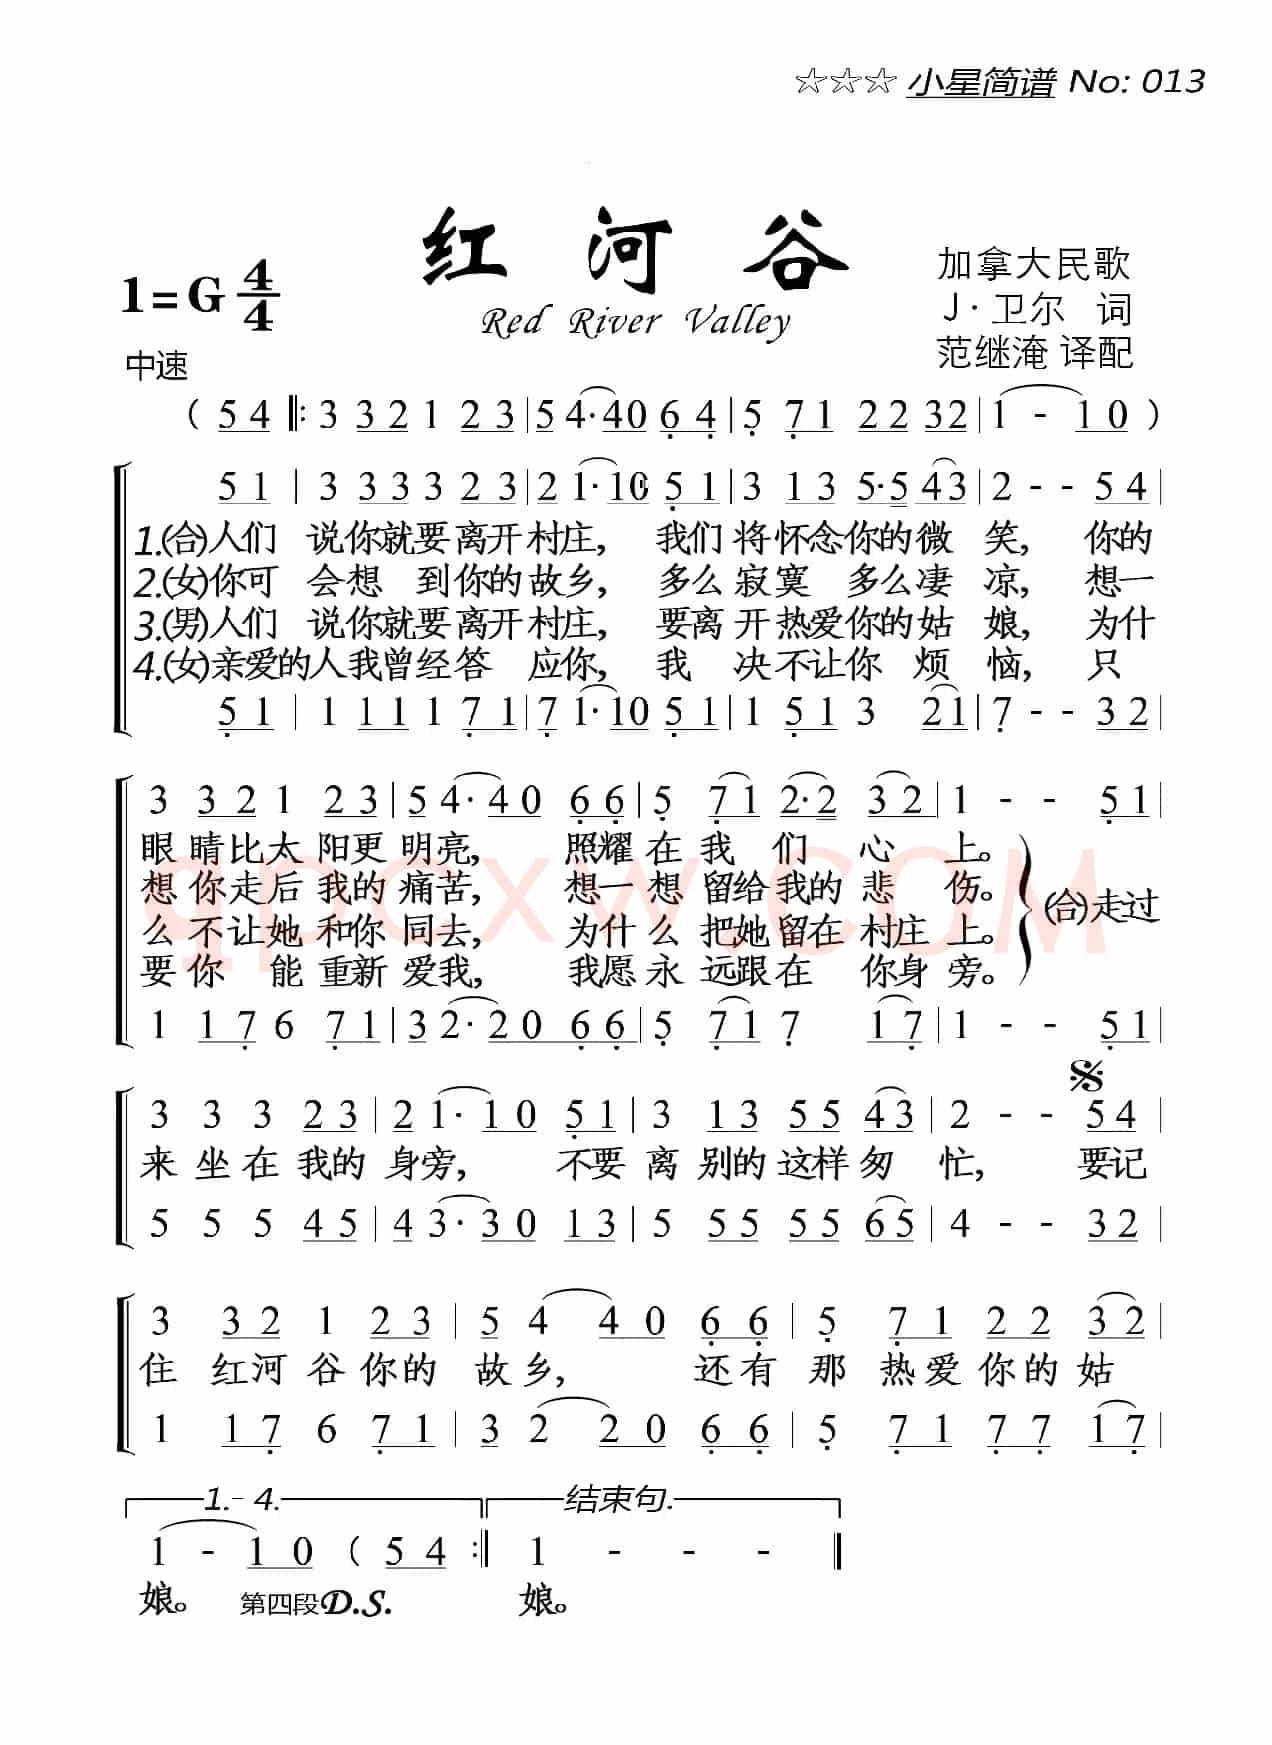 ☆☆☆ 小星简谱 No: 013
红河谷
Red River Valley
1=G 4/4
中速
加拿大民歌
J·卫尔 词
范继淹 译配
( 5 4 ‖: 3 3 2 1 2 3 | 5 4·4 0 6 4 | 5 7 1 2 2 3 2 | 1 - 1 0 )
5 1 | 3 3 3 3 2 3 | 2 1·1 0 5 1 | 3 1 3 5·5 4 3 | 2 - - 5 4 |
1.(合)人们 说你就要离开村庄, 我们将怀念你的微 笑, 你的
2.(女)你可 会想 到你的故乡, 多么寂寞 多么凄 凉, 想一
3.(男)人们 说你就要离开村庄, 要离开热爱你的姑 娘, 为什
4.(女)亲爱的人我曾经答 应你, 我 决不让你 烦 恼, 只
5 1 | 1 1 1 1 7 1 | 7 1·1 0 5 1 | 1 5 1 3 2 1 | 7 - - 3 2 |
3 3 2 1 2 3 | 5 4·4 0 6 6 | 5 7 1 2·2 3 2 | 1 - - 5 1 |
眼 睛比太 阳更 明亮, 照耀在 我 们 心 上。
想 你走后 我的 痛苦, 想一想 留给我的 悲 伤。
(合)走过
么 不让她 和你 回去, 为什么 把她留在 村庄上。
要 你 能 重新 爱我, 我愿永 远跟在 你身旁。
1 1 7 6 7 1 | 3 2·2 0 6 6 | 5 7 1 7 1 7 | 1 - - 5 1 |
3 3 3 2 3 | 2 1·1 0 5 1 | 3 1 3 5 5 4 3 | 2 - - 5 4 |
来 坐 在 我的 身旁, 不要 离 别的 这样 匆 忙, 要记
5 5 5 4 5 | 4 3·3 0 1 3 | 5 5 5 5 5 6 5 | 4 - - 3 2 |
3 3 2 1 2 3 | 5 4 4 0 6 6 | 5 7 1 2 2 3 2 |
住 红河 谷 你的 故 乡, 还有 那 热爱 你的 姑
1 1 7 6 7 1 | 3 2 2 0 6 6 | 5 7 1 7 7 1 7 |
1.- 4. 结束句.
1 - 1 0 ( 5 4 :‖ 1 - - - ‖
娘。 第四段D.S. 娘。
qpcxw.com